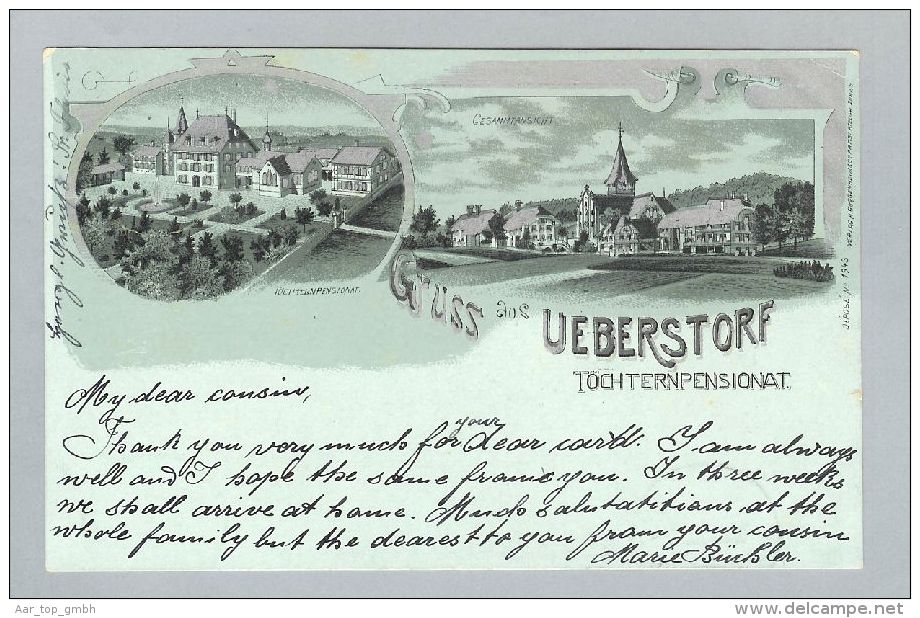 GESAMMTANSICHT
TÖCHTERNPENSIONAT.
GRUSS aus UEBERSTORF
TÖCHTERNPENSIONAT.
My dear cousin,
your
Thank you very much for dear card. I am always
well and I hope the same frome you. In three weeks
we shall arrive at home. Much Salutatitians at the
whole family but the dearest to you from your cousin
Marie Bürkler.
Aar_top_gmbh
www.delcampe.net